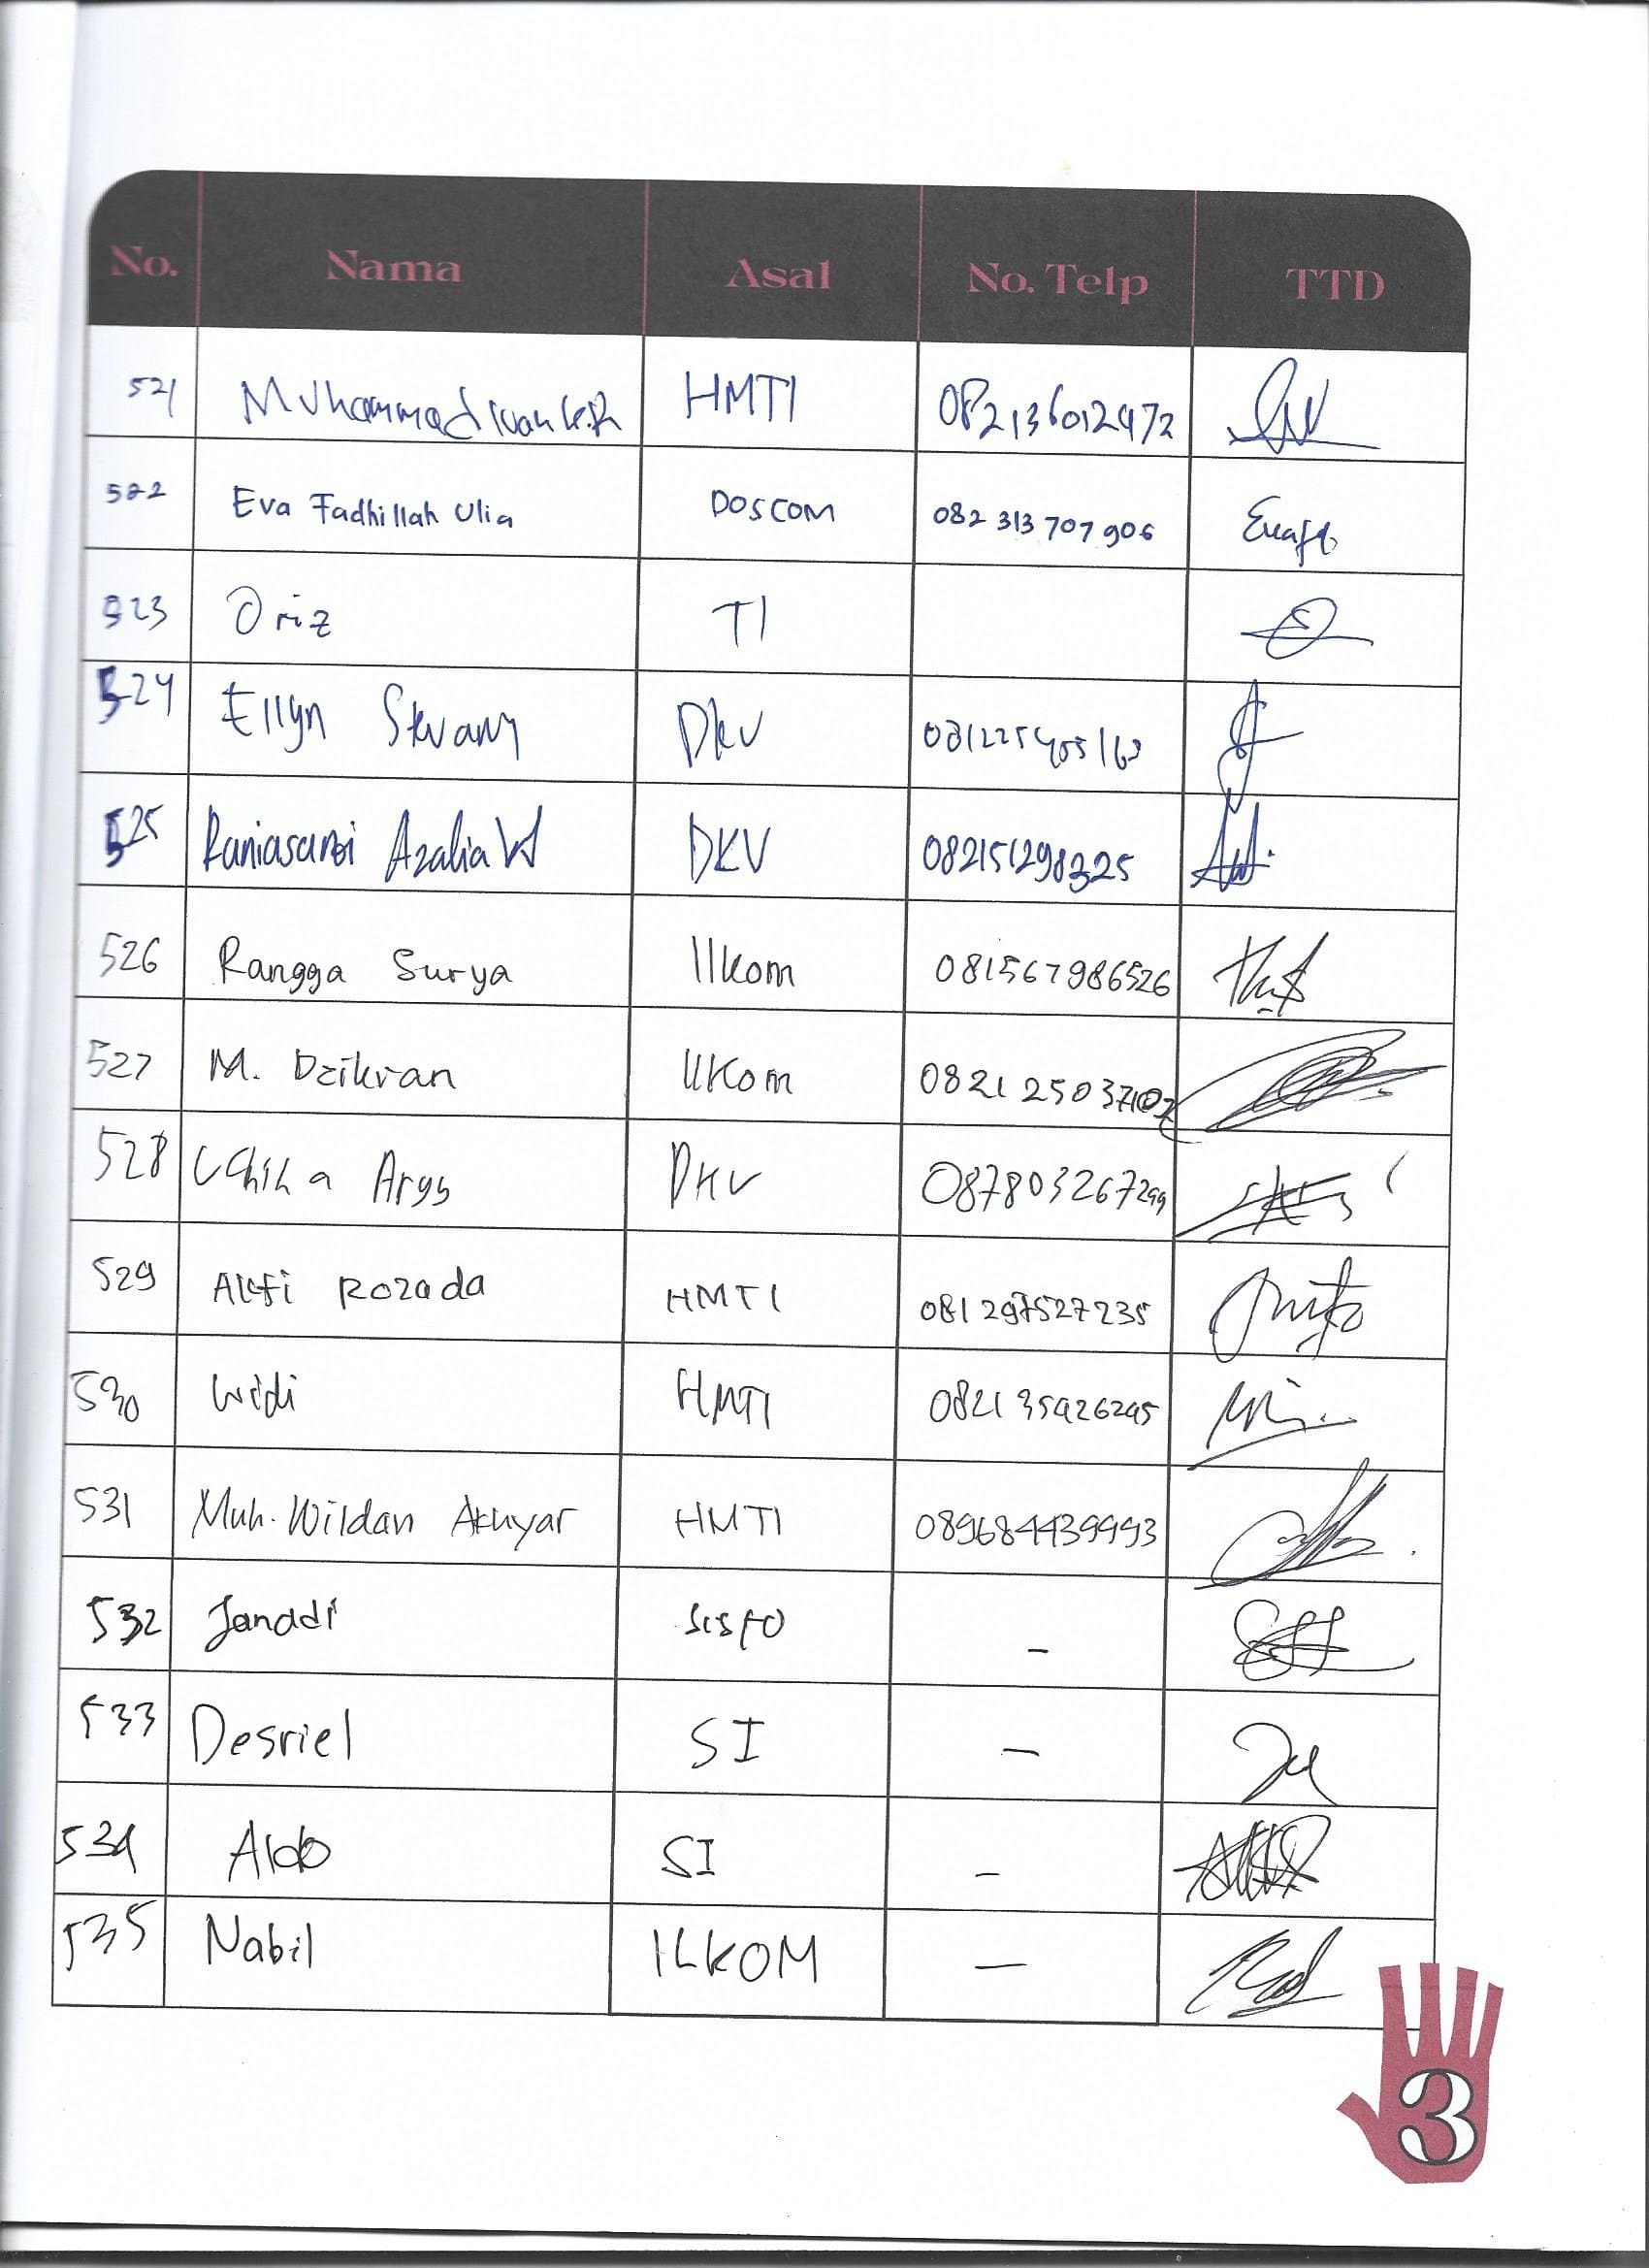 No. Nama Asal No. Telp TTD
521 Muhammad Ivan HMTI 082136012472
522 Eva Fadhillah Ulia DOSCOM 082 313 707 906
523 Oriz TI
524 Ellyn DKV
525 Raniasari Azalia W DKV 082151298325
526 Rangga Surya Ilkom 081567986526
527 M. Dzikran Ilkom 082125037107
528 DKV 087803267299
529 Alfi Rozada HMTI 081297527235
530 Widi HMTI 082135926295
531 Muh. Wildan Akhyar HMTI 089684439993
532 Janadi Sisfo -
533 Desriel SI -
534 Aldo SI -
535 Nabil ILKOM -
3